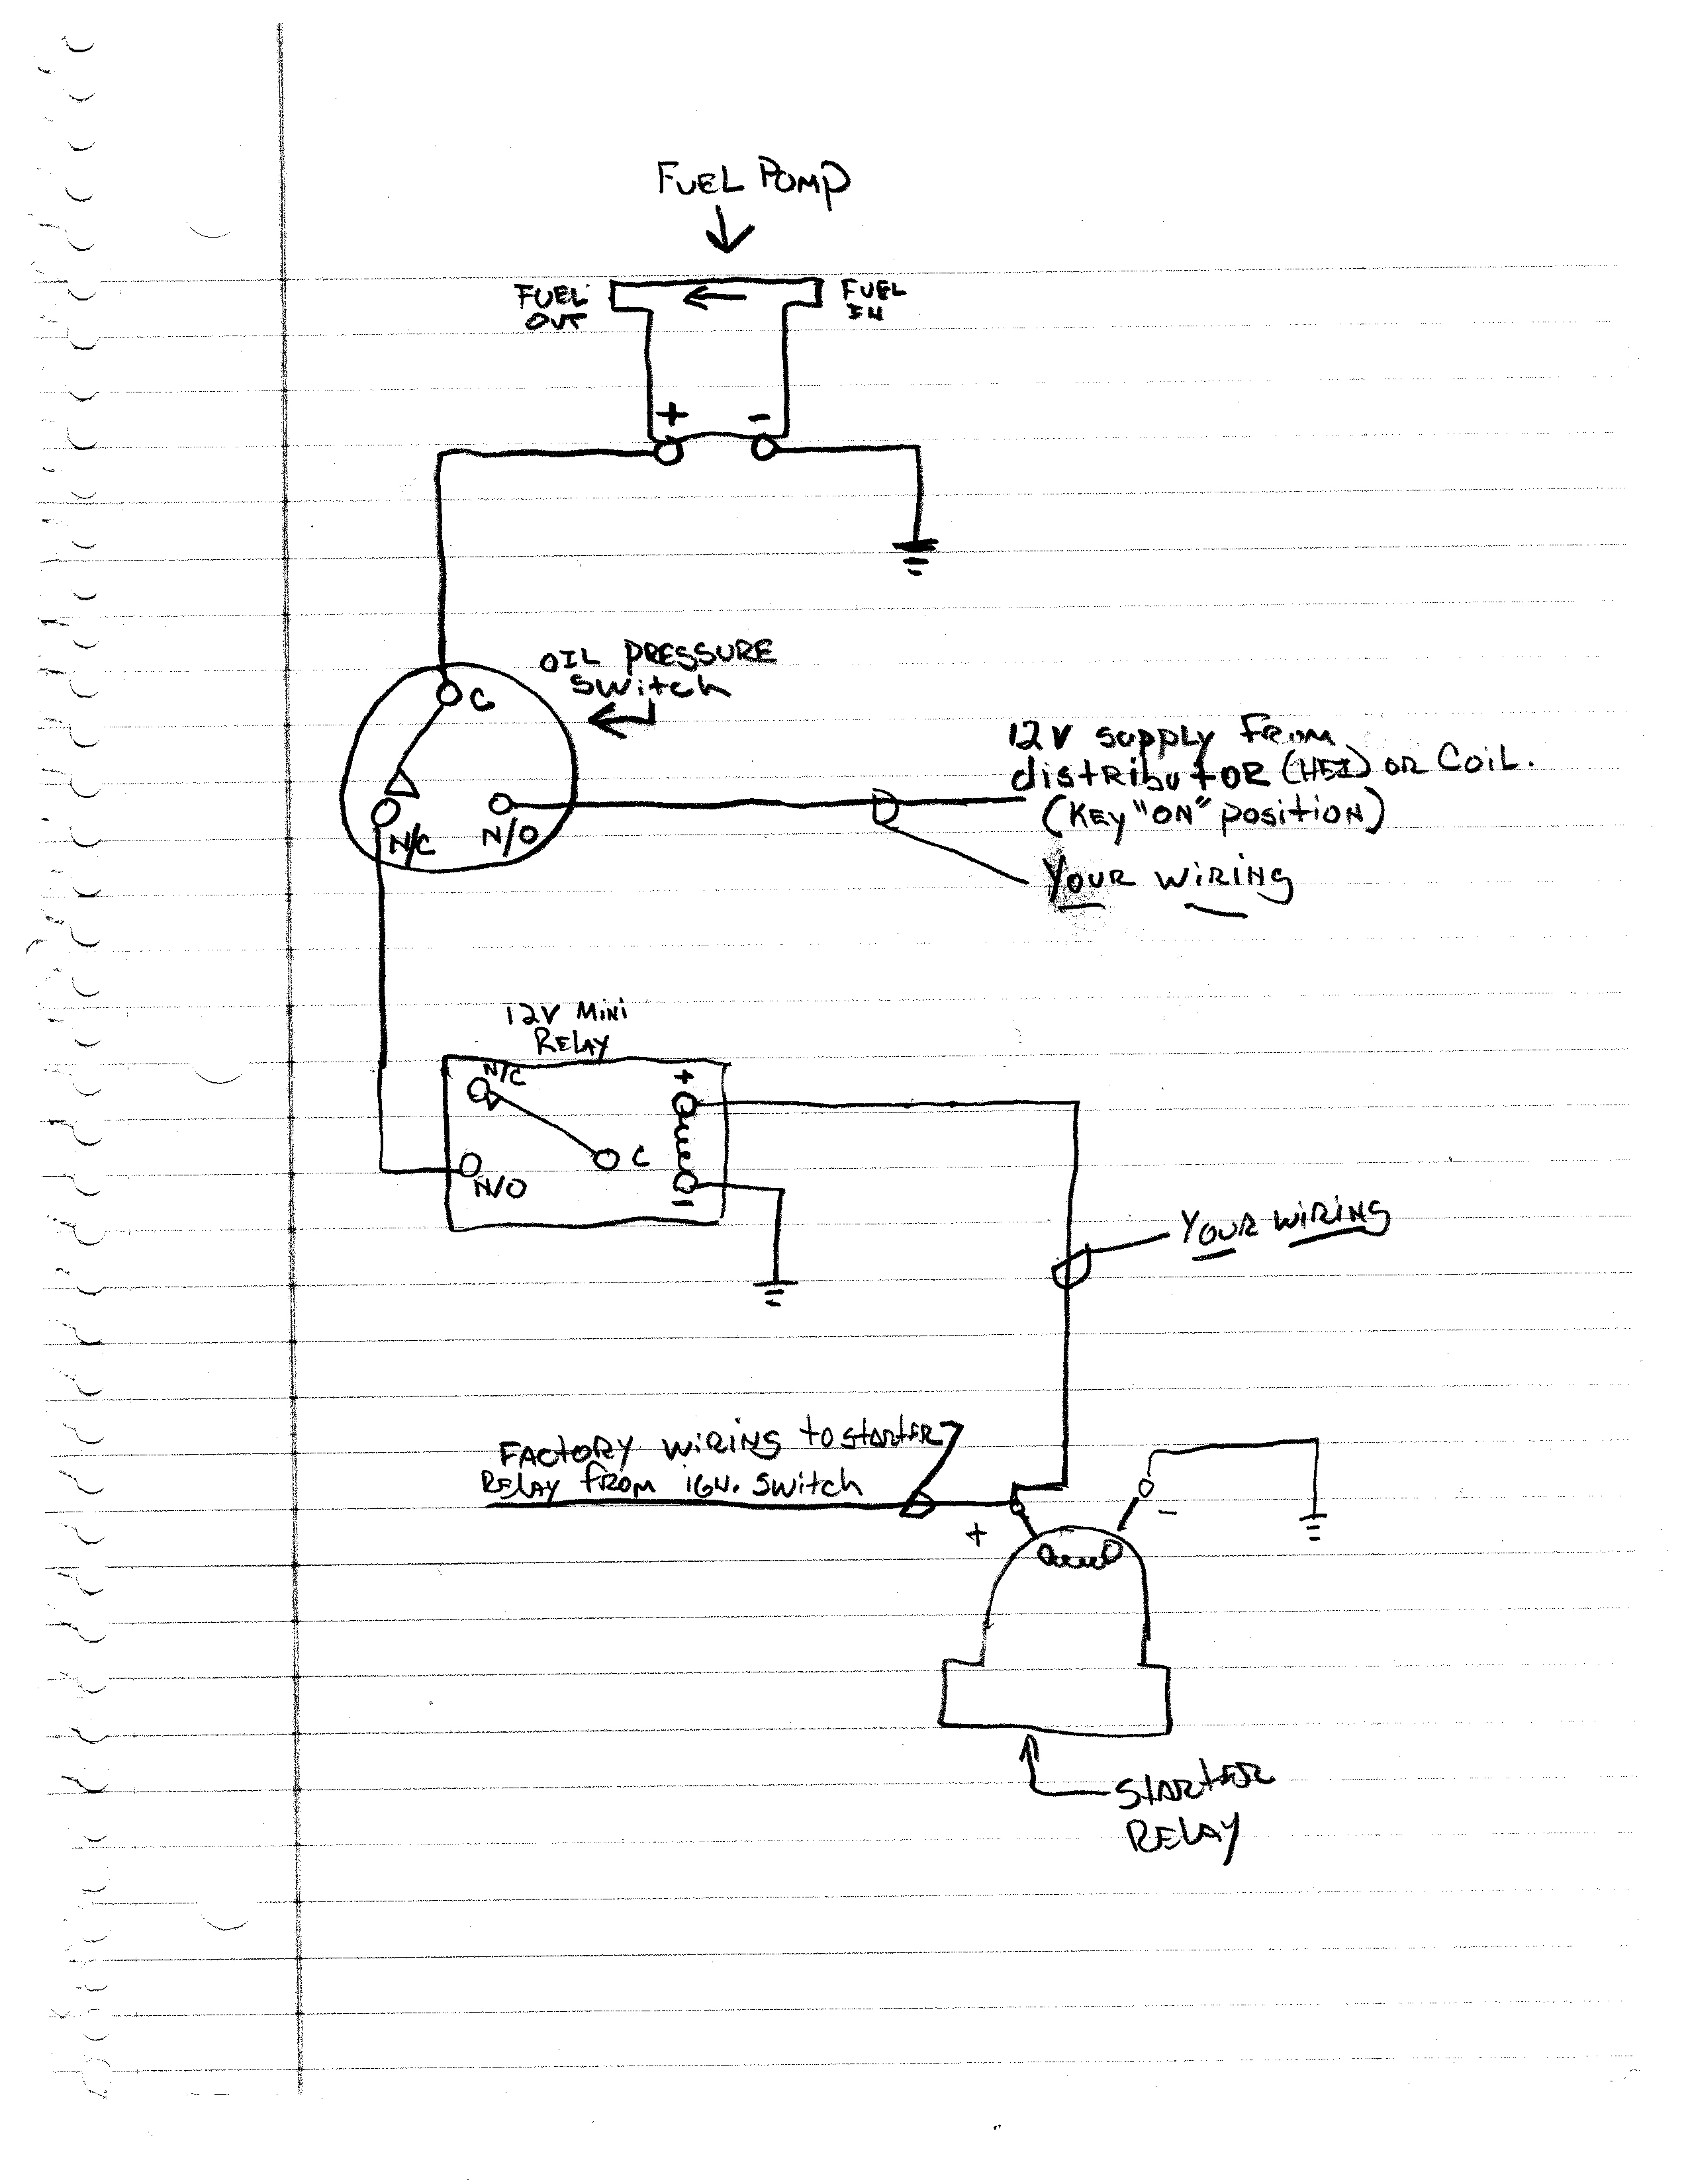 FUEL PUMP
FUEL
OUT
FUEL
IN
+
-
OIL PRESSURE
SWITCH
C
N/C
N/O
12V SUPPLY FROM
DISTRIBUTOR (HEI) OR COIL.
(KEY "ON" POSITION)
YOUR WIRING
12V MINI
RELAY
N/C
+
C
N/O
-
YOUR WIRING
FACTORY WIRING TO STARTER
RELAY FROM IGN. SWITCH
+
-
STARTER
RELAY